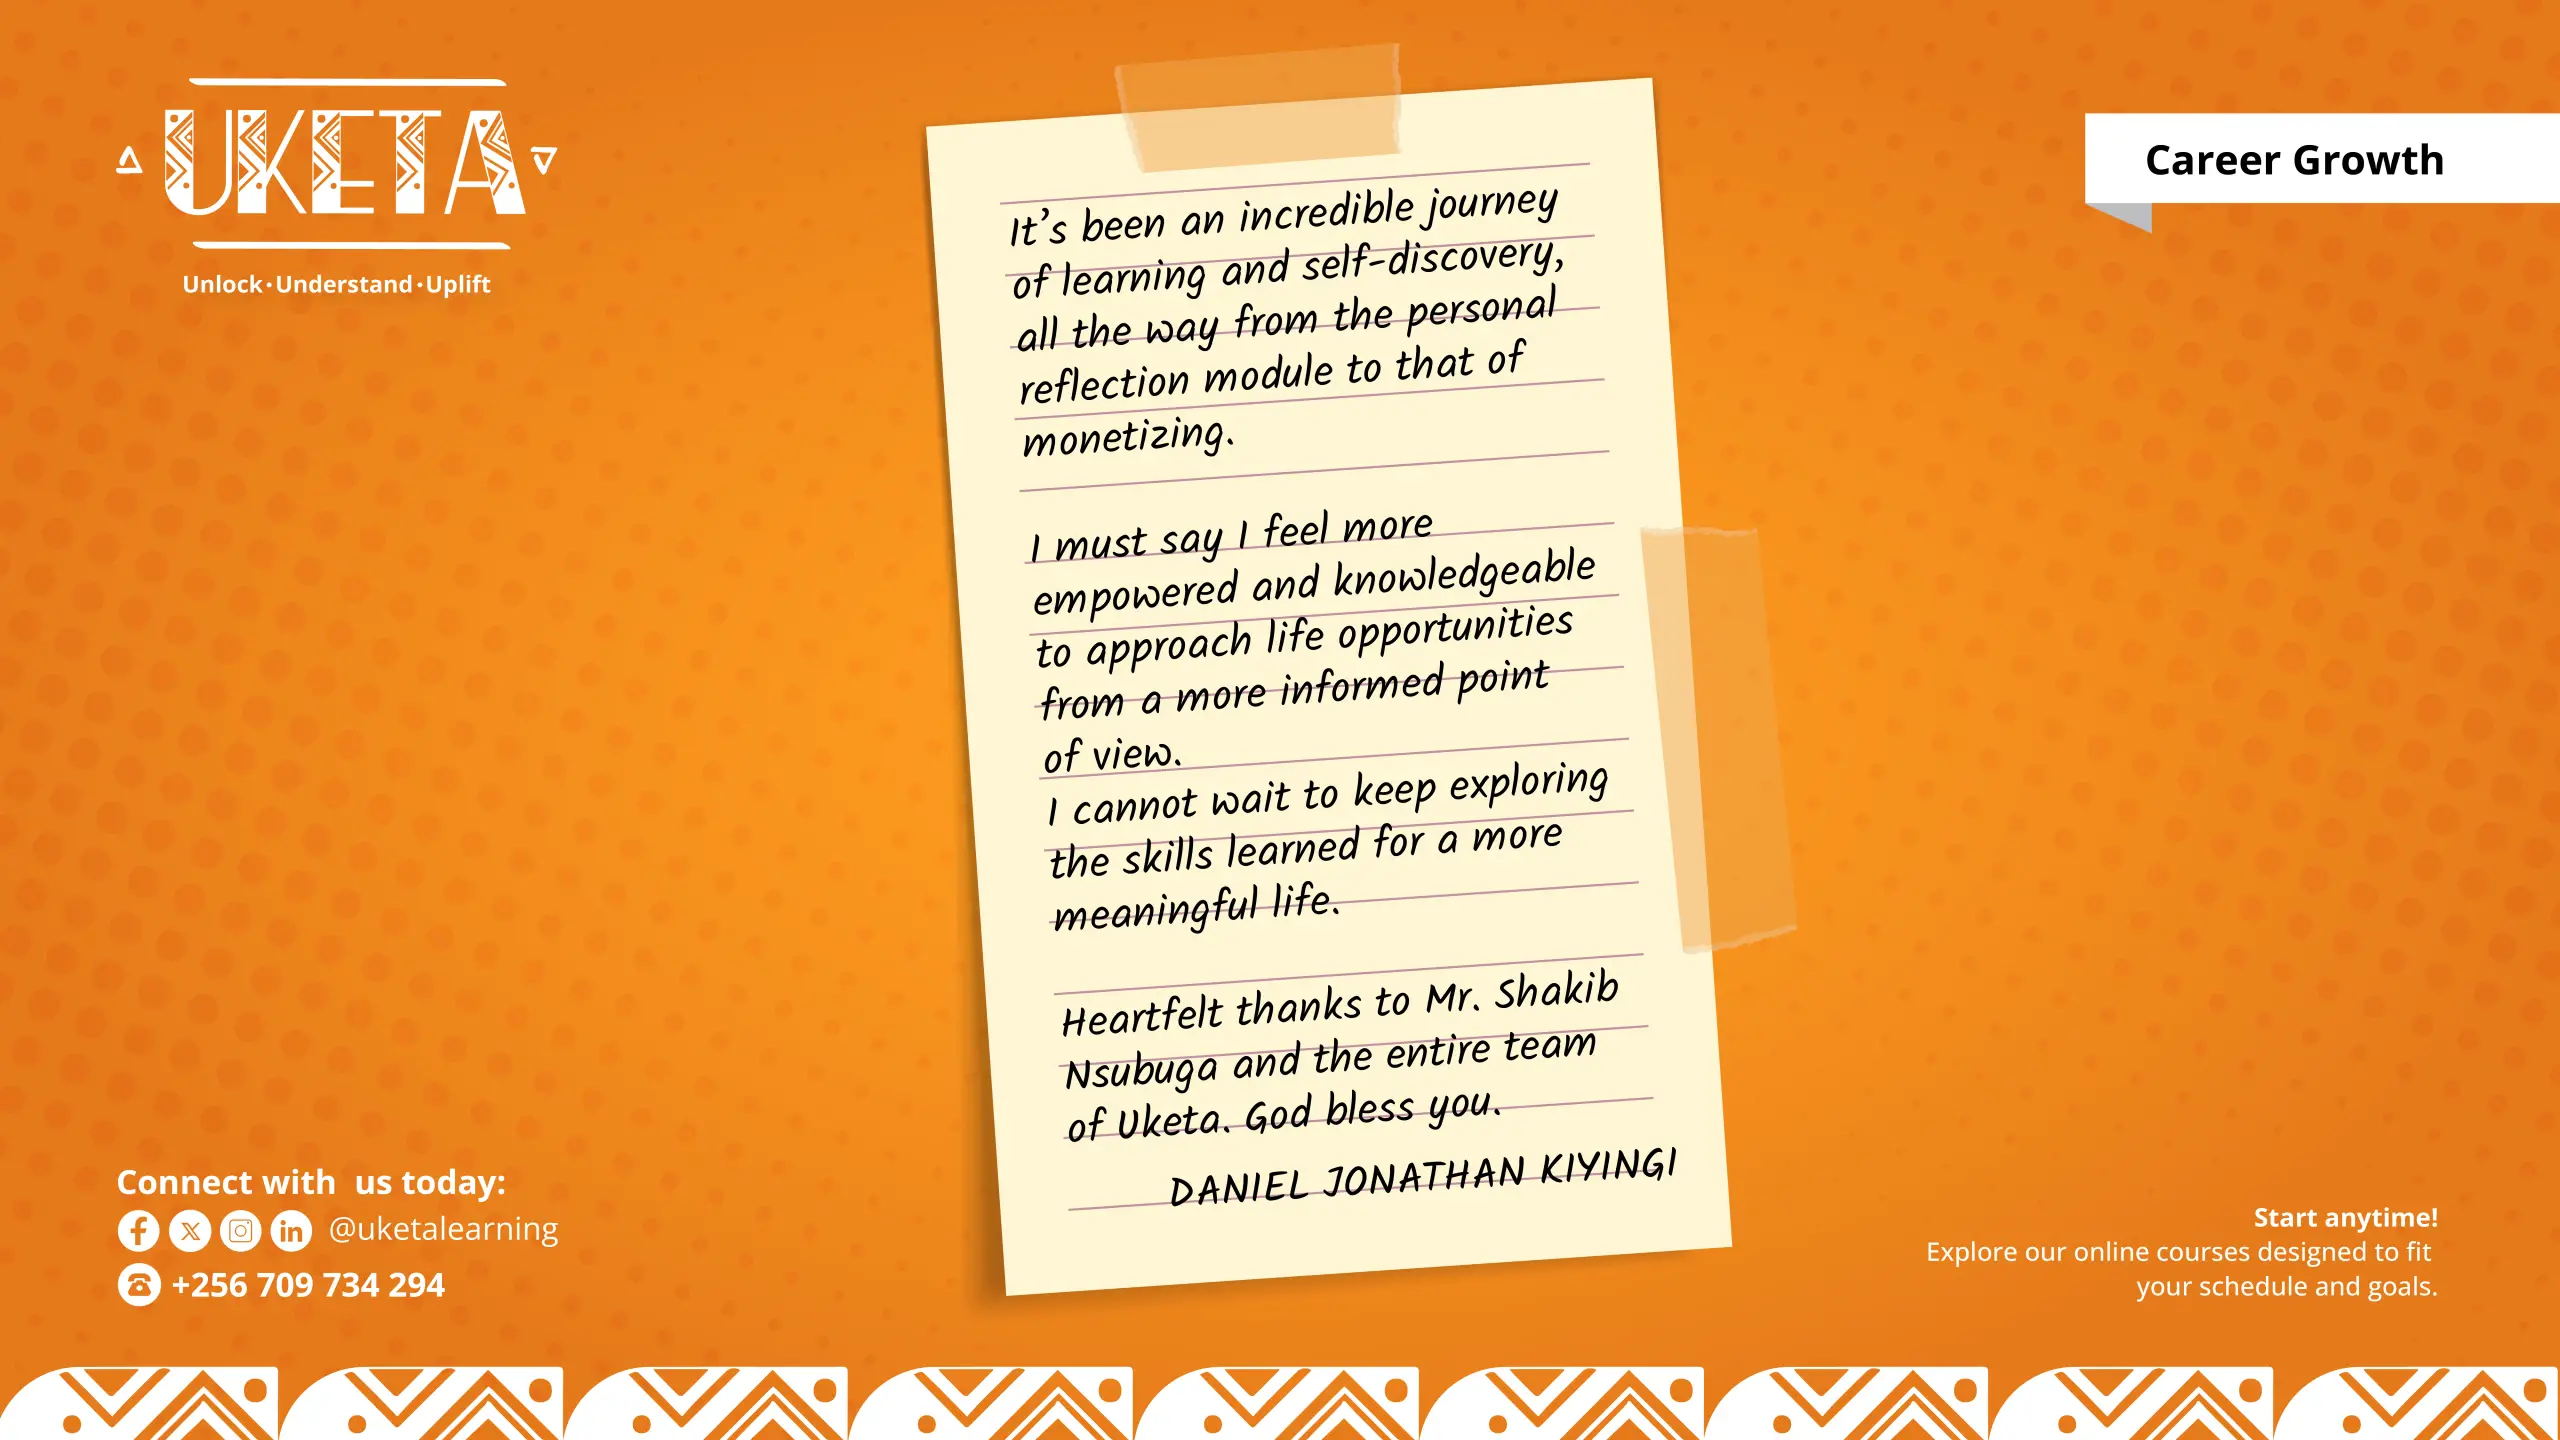 UKETA
Unlock·Understand·Uplift
Career Growth
It’s been an incredible journey
of learning and self-discovery,
all the way from the personal
reflection module to that of
monetizing.
I must say I feel more
empowered and knowledgeable
to approach life opportunities
from a more informed point
of view.
I cannot wait to keep exploring
the skills learned for a more
meaningful life.
Heartfelt thanks to Mr. Shakib
Nsubuga and the entire team
of Uketa. God bless you.
DANIEL JONATHAN KIYINGI
Connect with us today:
@uketalearning
+256 709 734 294
Start anytime!
Explore our online courses designed to fit
your schedule and goals.